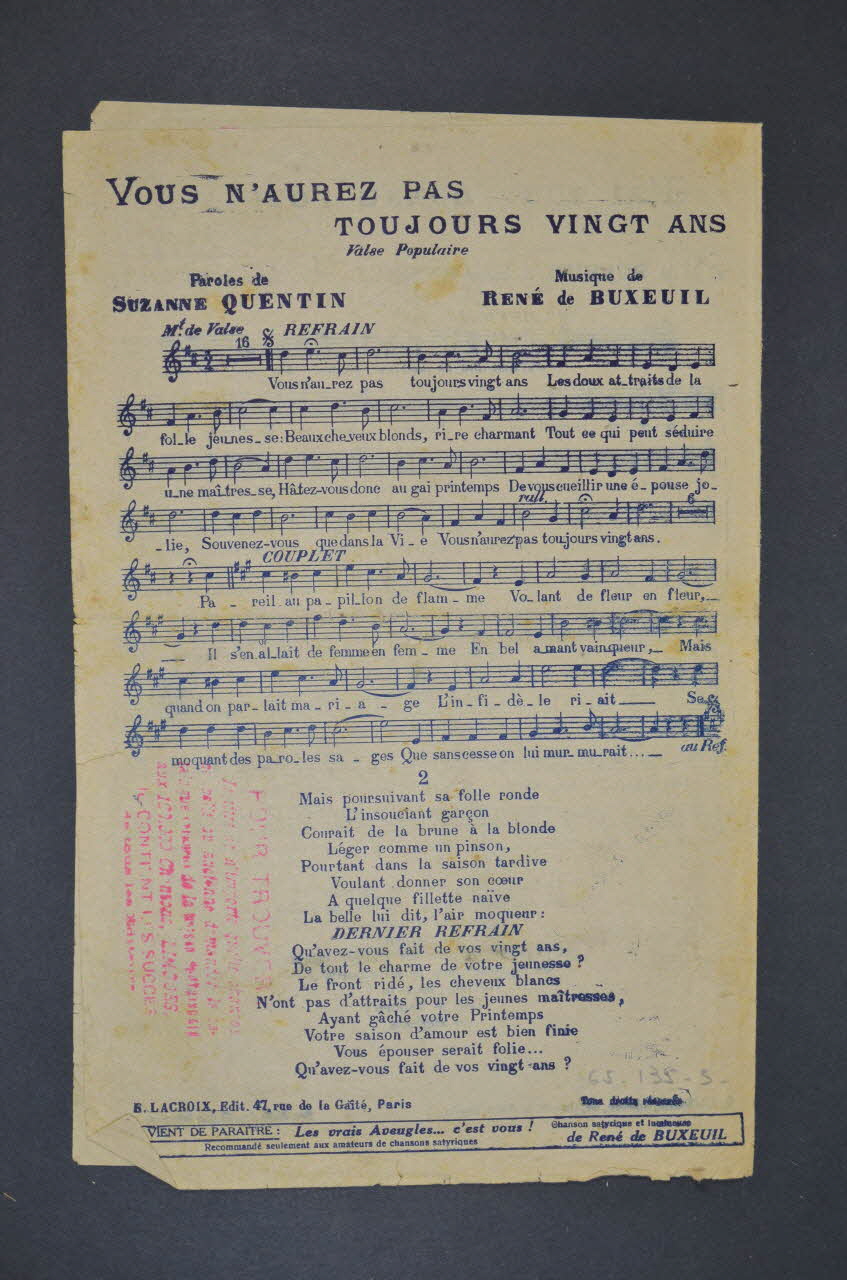 VOUS N'AUREZ PAS
TOUJOURS VINGT ANS
Valse Populaire
Paroles de
SUZANNE QUENTIN
Musique de
RENÉ de BUXEUIL
Mt. de Valse REFRAIN
16
Vous n'au_rez pas toujours vingt ans Les doux at_traits de la
fol_le jeu_nes_se: Beaux che_veux blonds, ri_re charmant Tout ce qui peut séduire
u_ne maî_tres_se, Hâ_tez-vous donc au gai printemps De vous cueillir une é_pouse jo_
rall.
6
_lie, Souvenez-vous que dans la Vi_e Vous n'aurez pas toujours vingt ans.
COUPLET
Pa_reil au pa_pil_lon de flam_me Vo_lant de fleur en fleur,_
Il s'en al_lait de femme en fem_me En bel a_mant vainqueur,_ Mais
quand on par_lait ma_ri_a_ge L'in_fi_dè_le ri_ait___ Se
moquant des pa_ro_les sa_ges Que sans cesse on lui mur_mu_rait...._ au Ref.
2
Mais poursuivant sa folle ronde
L'insouciant garçon
Courait de la brune à la blonde
Léger comme un pinson,
Pourtant dans la saison tardive
Voulant donner son cœur
A quelque fillette naïve
La belle lui dit, l'air moqueur:
DERNIER REFRAIN
Qu'avez-vous fait de vos vingt ans,
De tout le charme de votre jeunesse ?
Le front ridé, les cheveux blancs
N'ont pas d'attraits pour les jeunes maîtresses,
Ayant gâché votre Printemps
Votre saison d'amour est bien finie
Vous épouser serait folie...
Qu'avez-vous fait de vos vingt ans ?
65.135-3-
E. LACROIX, Edit. 47, rue de la Gaîté, Paris
Tous droits réservés
VIENT DE PARAITRE : Les vrais Aveugles... c'est vous ! Chanson satyrique et lumineuse
Recommandé seulement aux amateurs de chansons satyriques
de René de BUXEUIL
POUR TROUVER
CONTIENT LES SUCCES